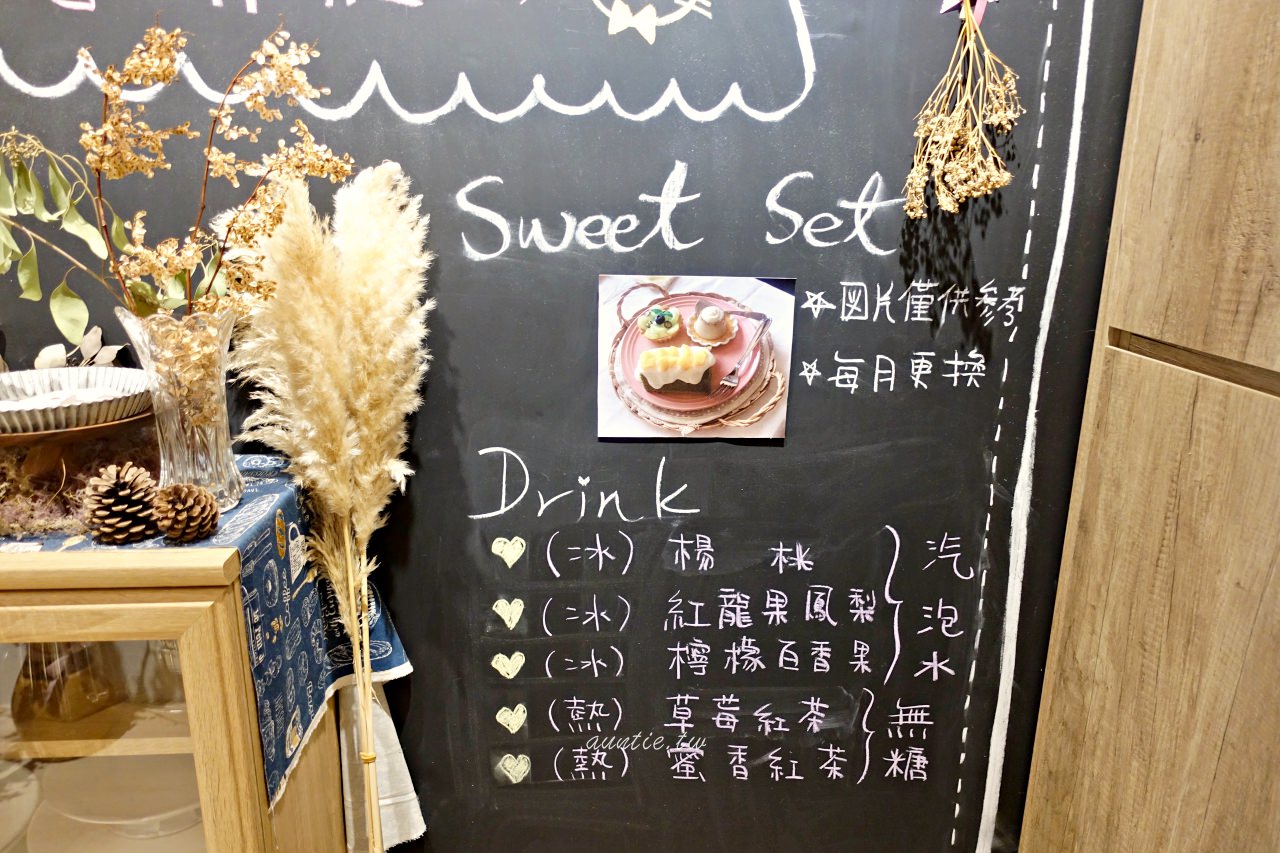 Sweet Set
☆圖片僅供參考
☆每月更換
Drink
♥(冰) 楊桃
♥(冰) 紅龍果鳳梨
♥(冰) 檸檬百香果
汽泡水
♥(熱) 草莓紅茶
♥(熱) 蜜香紅茶
無糖
auntie.tw